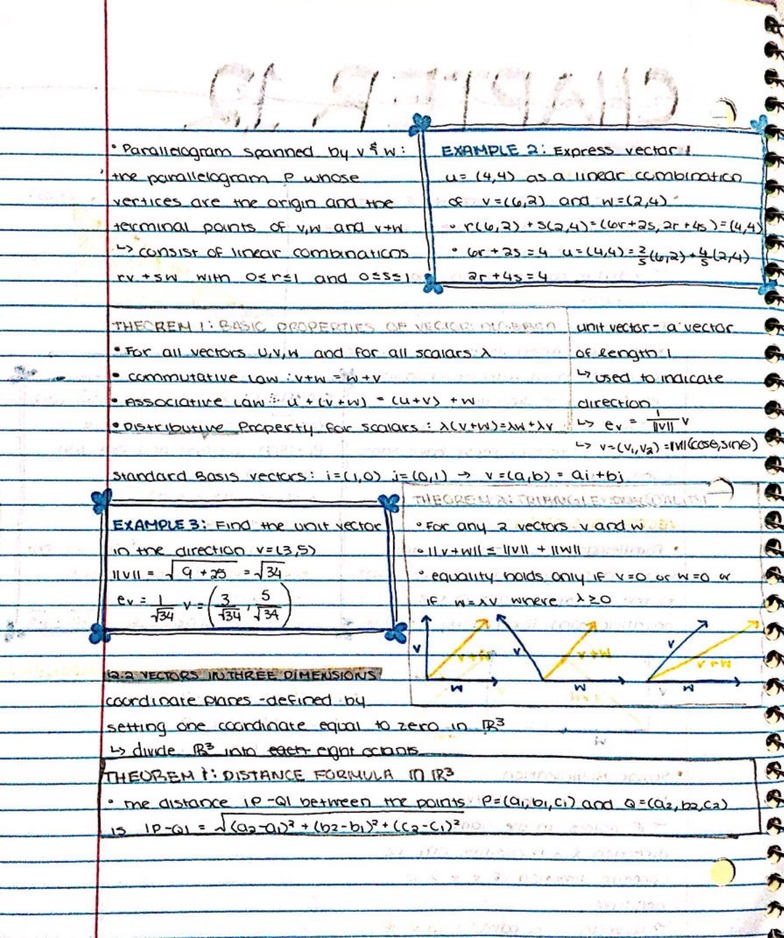 CHAPTER 12
• Parallelogram spanned by v & w:
the parallelogram P whose
vertices are the origin and the
terminal points of v,w and v+w
↳ consist of linear combinations
rv + sw with 0≤r≤1 and 0≤s≤1
EXAMPLE 2: Express vector
u= (4,4) as a linear combination
of v=(6,2) and w=(2,4)
• r(6,2) + s(2,4)=(6r+2s, 2r+4s)=(4,4)
• 6r + 2s = 4 u=(4,4)=2/5(6,2)+4/5(2,4)
2r + 4s = 4
THEOREM 1: BASIC PROPERTIES OF VECTOR ALGEBRA
• For all vectors u,v,w and for all scalars λ
• Commutative Law : v+w = w+v
• Associative Law : u + (v+w) = (u+v) + w
• Distributive Property for Scalars : λ(v+w)=λw+λv
unit vector - a vector
of length 1
↳ used to indicate
direction
↳ ev = 1/||v|| v
↳ v=(v1,v2)=||v||(cosθ,sinθ)
Standard Basis vectors: i=(1,0) j=(0,1) → v=(a,b) = ai +bj
EXAMPLE 3: Find the unit vector
in the direction v=(3,5)
||v|| = √9 + 25 = √34
ev = 1/√34 v = (3/√34, 5/√34)
THEOREM 2: TRIANGLE INEQUALITY
• For any 2 vectors v and w
• ||v+w|| ≤ ||v|| + ||w||
• equality holds only if v=0 or w=0 or
if w=λv where λ≥0
v v+w w
v v+w w
v v+w w
12.2 VECTORS IN THREE DIMENSIONS
coordinate planes - defined by
setting one coordinate equal to zero in ℝ³
↳ divide ℝ³ into each eight octants
THEOREM 1: DISTANCE FORMULA IN ℝ³
• The distance |P-Q| between the points P=(a1,b1,c1) and Q=(a2,b2,c2)
is |P-Q| = √(a2-a1)² + (b2-b1)² + (c2-c1)²